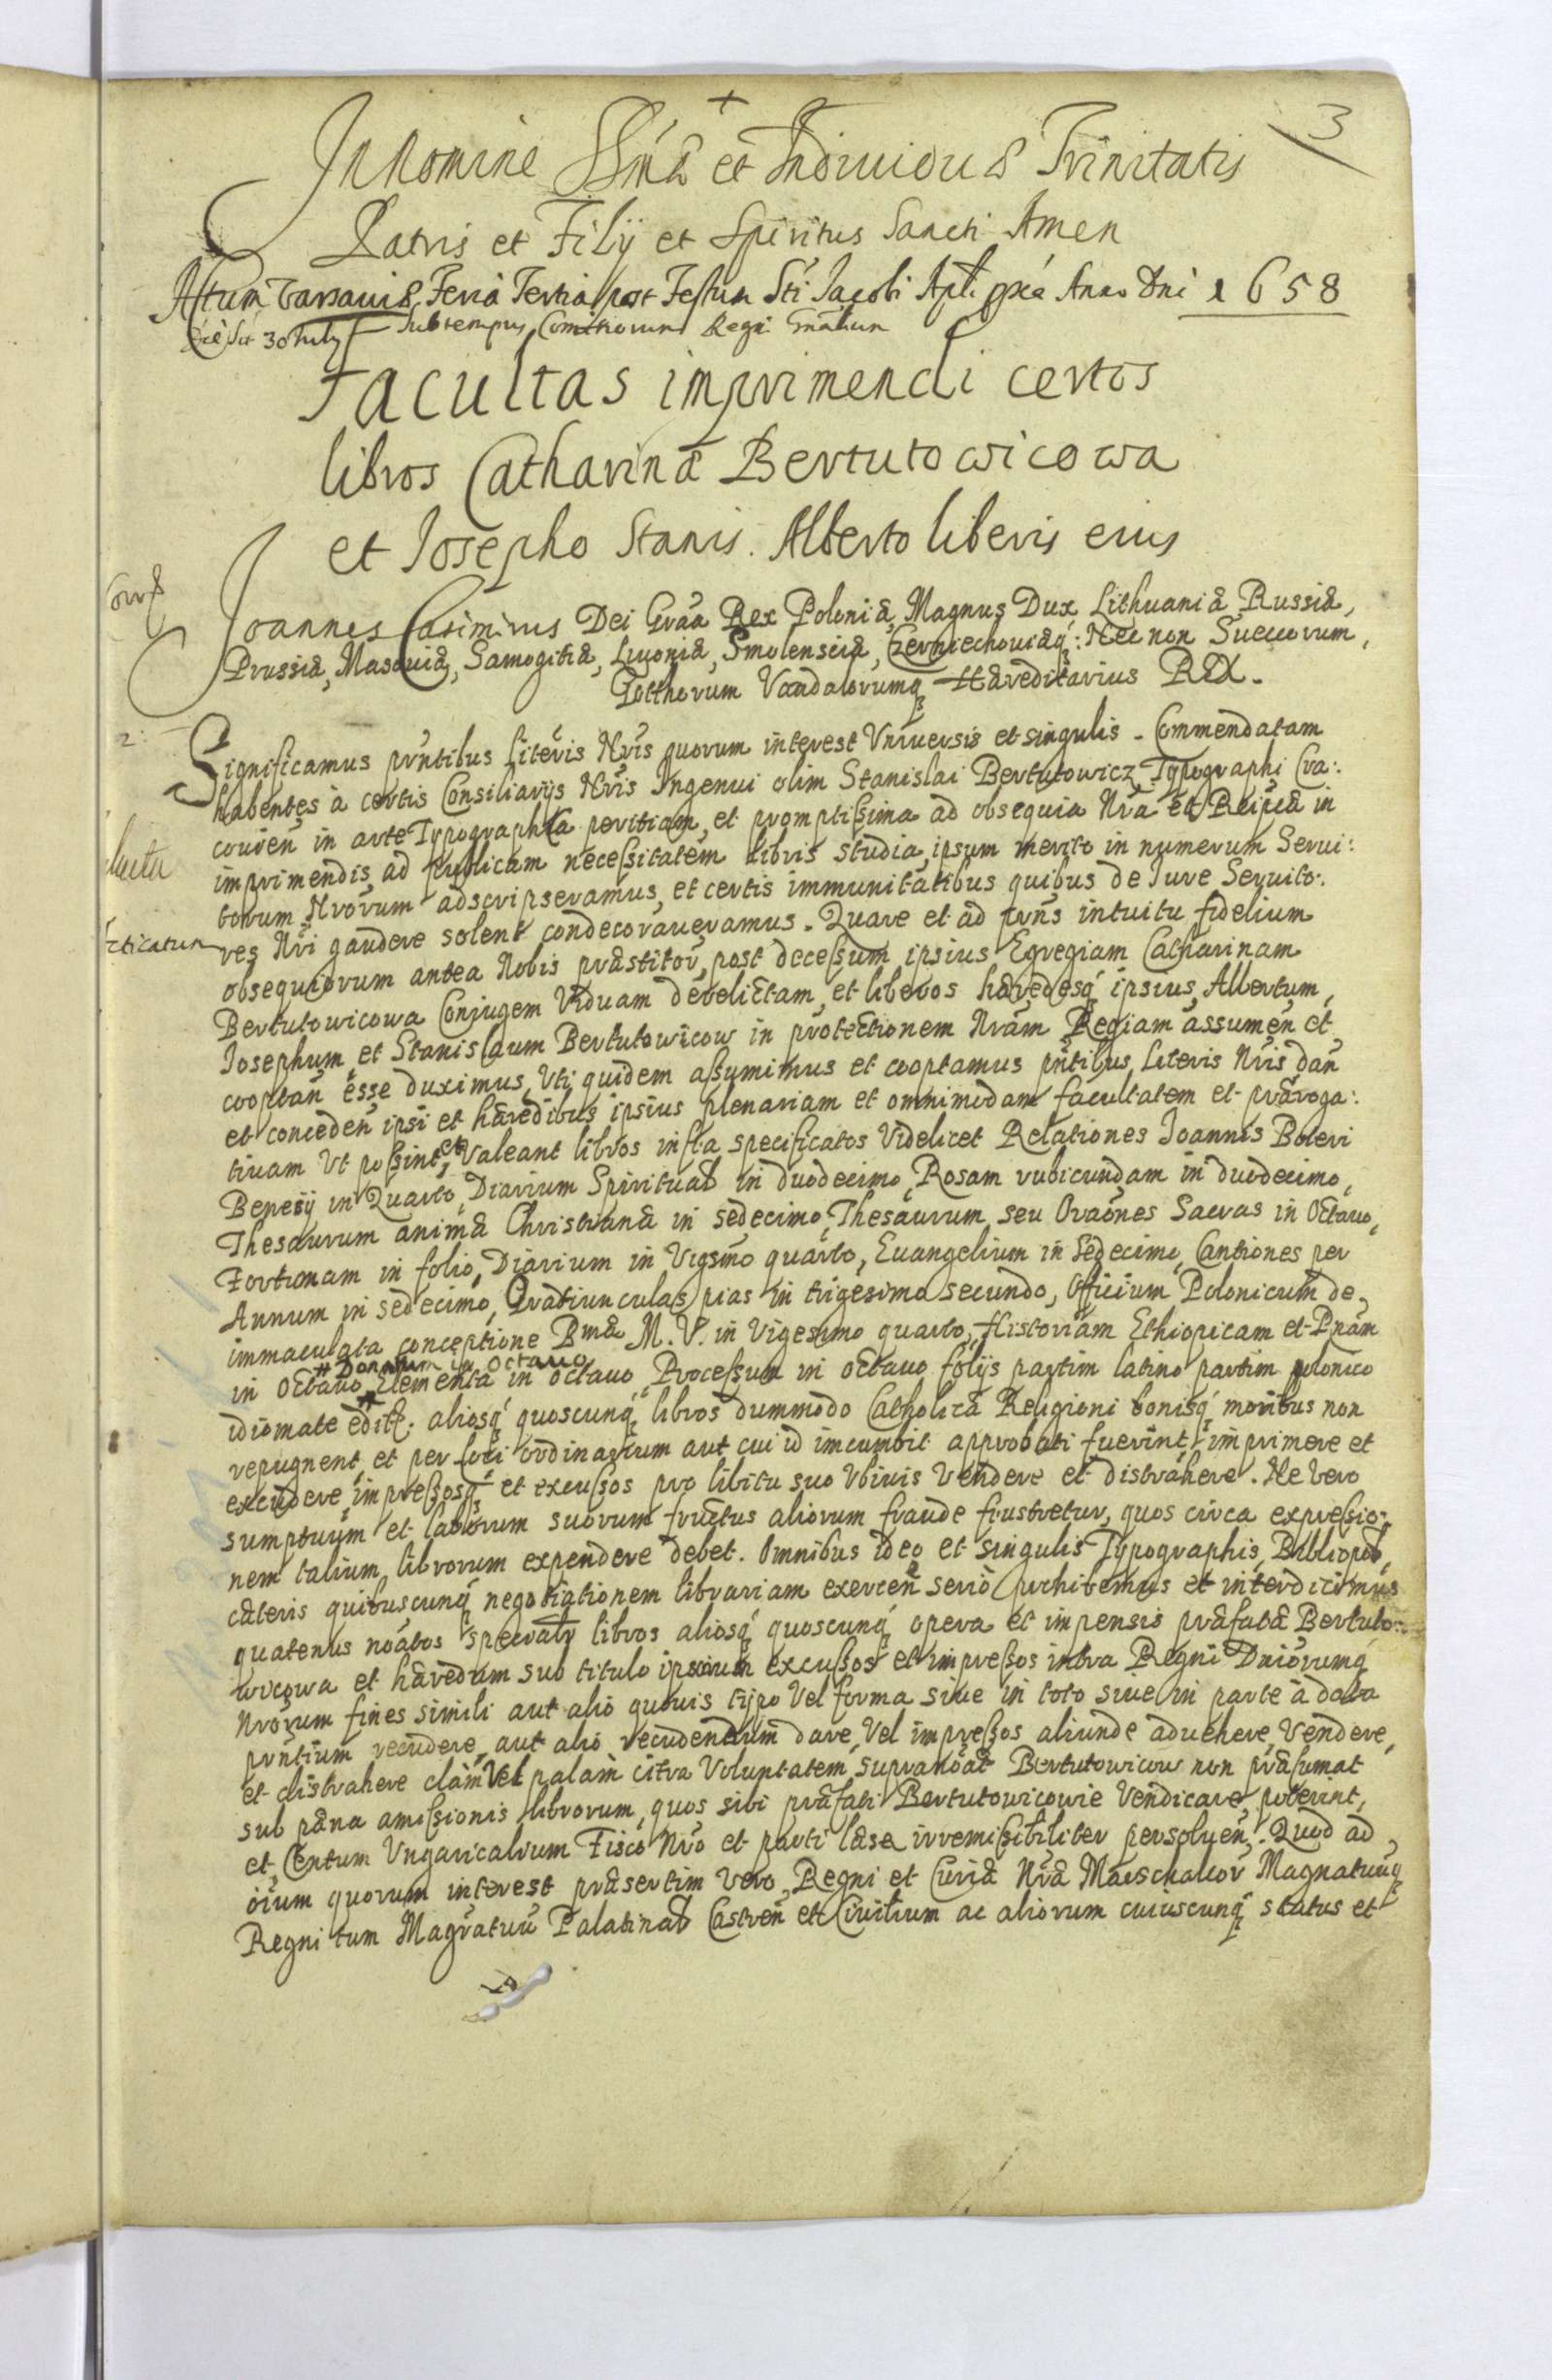 3
In Nomine SSmæ et Indiuiduæ Trinitatis
Patris et Filij et Spiritus Sancti Amen
Actum Varsauiæ Feria Tertia post Festum Sti Jacobi Apli pxá Anno Dni 1658
die sct 30 July sub tempus Comitiorum Regni Gnãlium
Facultas imprimendi certos
libros Catharinæ Bertutowicowa
et Josepho Stanis. Alberto liberis eius
Joannes Casimirus Dei Graã Rex Poloniæ, Magnus Dux Lithuaniæ Russiæ,
Prussiæ, Masouiæ, Samogitiæ, Liuoniæ, Smolensciæ, Czerniechouiæq: Nec non Suecorum,
Gotthorum Vandalorumq Hæreditarius REX.
2:
Significamus pñntibus literis Nris quorum interest Vniuersis et singulis. Commendatam
habentes à certis Consiliarijs Nris Ingenui olim Stanislai Bertutowicz Typographi Cra:
couień in arte Typographica peritiam, et promptissima ad obsequia Nra et Reipcæ in
imprimendis ad publicam necessitatem libris studia, ipsum merito in numerum Serui:
torum Nrorum adscripseramus, et certis immunitatibus quibus de Jure Seruito:
res Nri gaudere solent condecoraueramus. Quare et ad pñs intuitu fidelium
obsequiorum antea Nobis præstitor, post decessum ipsius Egregiam Catharinam
Bertutowicowa Conjugem Viduam derelictam, et liberos hæredesq ipsius, Albertum,
Josephum, et Stanislaum Bertutowicow in protectionem Nram Regiam assumeñ et
cooptañ esse duximus, Vti quidem assumimus et cooptamus pñtibus Literis Nris dañ
et concedeñ ipsi et hæredibus ipsius plenariam et omnimodam facultatem et præroga:
tiuam Vt possint, et Valeant libros infra specificatos Videlicet Relationes Joannis Boteri
Benesij in Quarto, Diarium Spirituale in duodecimo, Rosam rubicundam in duodecimo,
Thesaurum animæ Christianæ in sedecimo, Thesaurum seu Oraones Sacras in Octauo,
Fortunam in folio, Diarium in Vigsmo quarto, Euangelium in Sedecimo, Cantiones per
Annum in sedecimo, Oratiunculas pias in trigesimo secundo, Officium Polonicum de
immaculata conceptione Bmæ M. V. in Vigesimo quarto, Historiam Ethiopicam et Pnam
# Donatum in Octauo
in Octauo, Elementa in octauo, Processum in octauo folijs partim latino partim polonico
idiomate edit. aliosq quoscunq libros dummodo Catholicæ Religioni bonisq moribus non
repugnent, et per loci ordinarium aut cui id incumbit approbati fuerint, imprimere et
excudere impressosq et excussos pro libitu suo Vbiuis Vendere et distrahere. Ne Vero
sumptuum et laborum suorum fructus aliorum fraude frustretur, quos circa expressio:
nem talium librorum expendere debet. Omnibus ideo et singulis Typographis, Bibliopol,
cæteris quibuscunq negotiationem librariam exerceñ serio prohibemus et interdicimus
quatenus noatos speciatr libros aliosq quoscunq opera et impensis præfatæ Bertuto:
wicowa et hæredum sub titulo ipsorum excussos et impressos intra Regni Dniorumq
Nrorum fines simili aut alio quouis typo Vel forma siue in toto siue in parte à data
prñtium recudere, aut alio recudendum dare, Vel impressos aliunde aduehere, Vendere,
et distrahere clam Vel palam citra Voluntatem supranoat Bertutowicow non præsumat
sub pæna amissionis librorum, quos sibi præfati Bertutowicowie Vendicare poterint,
et Centum Vngaricalium Fisco Nro et parti læsæ irremissibiliter persolueñ. Quod ad
oium quorum interest præsertim Vero Regni et Curiæ Nræ Marschalcor Magnatuuq
Regni tum Magratuu Palatinal Castreñ et Ciuilium ac aliorum cuiuscunq status et